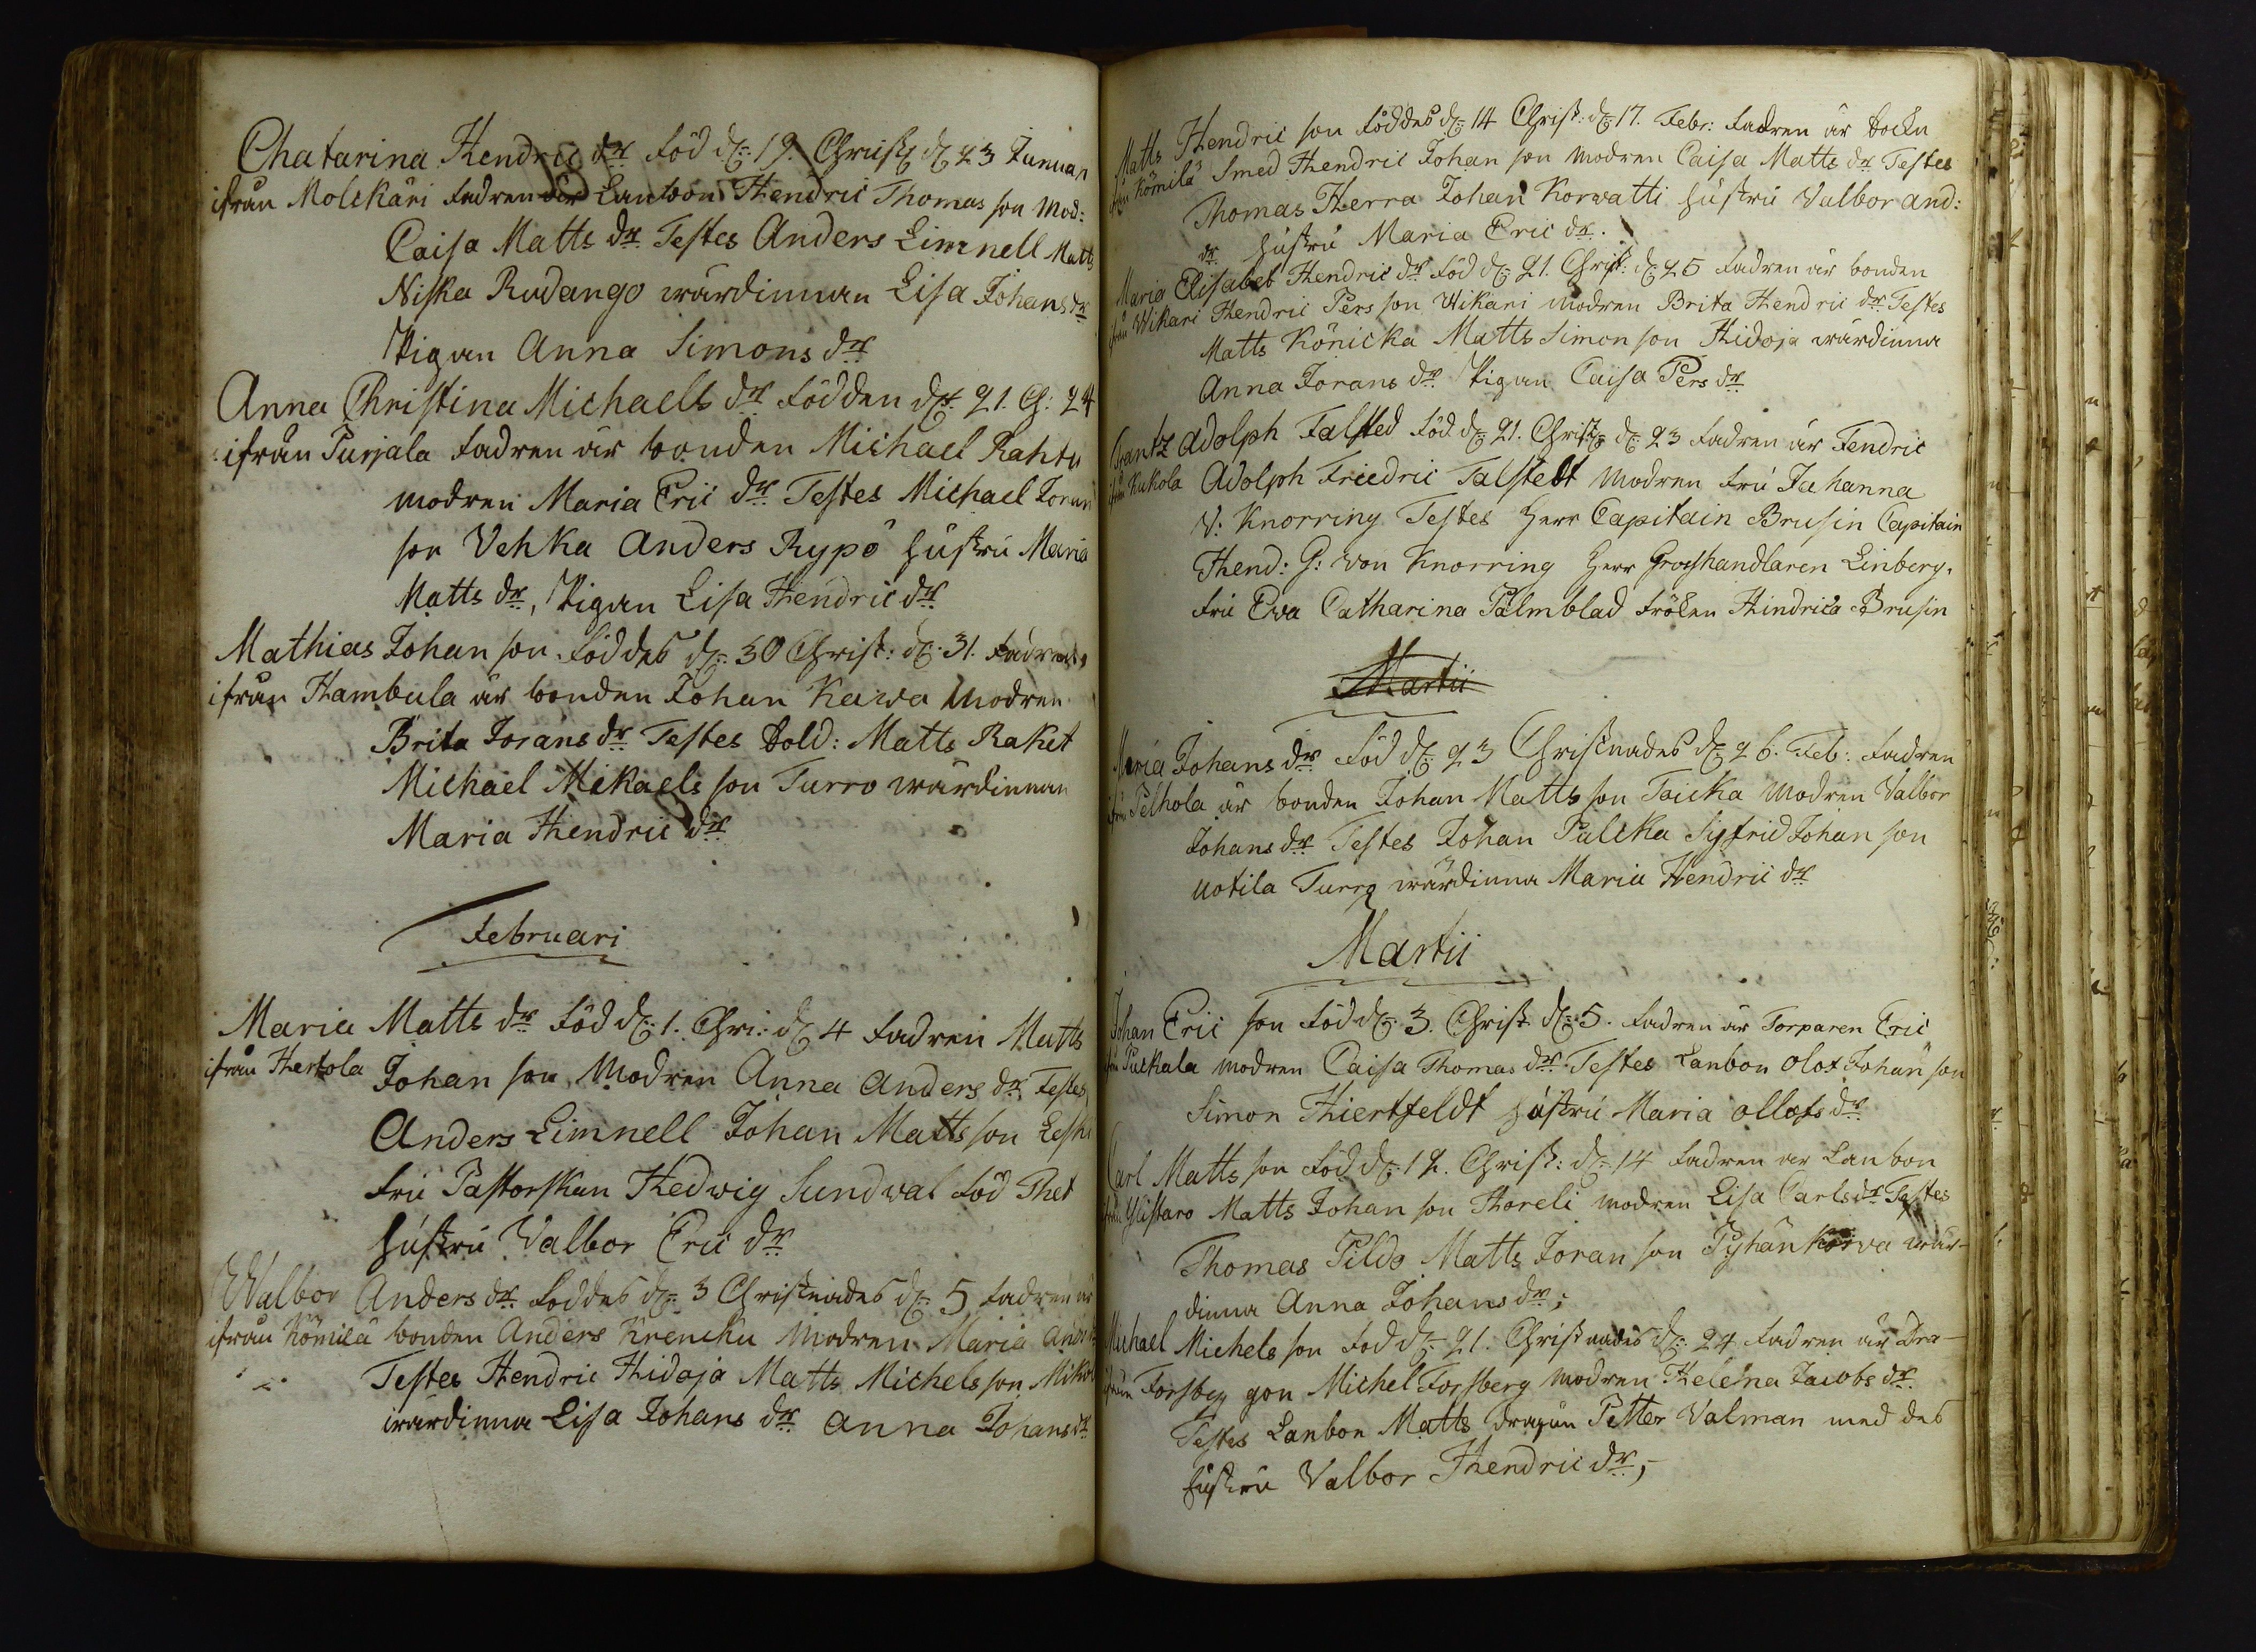 Chatarina Hendric dr Född d: 19. Christ d 23 Januari
ifrån Molskäri Fadren är Lanboon Hendric Thomas son Mod:
Caisa Matts dr Testes Anders Limnell Matts
Niska Rudango wärdinnan Lisa Johans dr
Pigan Anna Simons dr
Anna Christina Michaels dr Född den d: 21. Ch: 24
ifrån Purjala Fadren är bonden Michael Rahtu
modren Maria Eric dr Testes Michael Joran
son Vehka Anders Rypö hustru Maria
Matts dr, Pigan Lisa Hendric dr
Mathias Johan son Föddes d: 30 Christ: d: 31. Fadren
ifrån Hambula är bonden Johan Kawa Modren
Brita Jorans dr Testes Sold: Matts Raket
Michael Mikaels son Turro wärdinnan
Maria Hendric dr
Februari
Maria Matts dr Född d: 1. Chri: d 4 Fadren Matts
ifrån Hertola Johan son Modren Anna Anders dr Testes
Anders Limnell Johan Matts son
Fru Pastorskan Hedwig Sundwal Född Thet
hustru Valbor Eric dr
Walbor Anders dr Föddes d: 3 Christnades d: 5 Fadren är
ifrån Kömilä bonden Anders Krencku Modren Maria And:
Testes Hendric Hidoja Matts Michels son
wärdinna Lisa Johans dr Anna Johans dr
Matts Hendric son Föddes d: 14 Christ: d: 17. Febr: Fadren är Sockn
ifrån Kömilä Smed Hendric Johan son Modren Caisa Matts dr Testes
Thomas Herra Johan Korwatti hustru Valbor And:
dr hustru Maria Eric dr.
Maria Elisabet Hendric dr Född d: 21. Christ: d: 25 Fadren är bonden
ifrån Wikari Hendric Pers son Wikari modren Brita Hendric dr Testes
Matts Könicka Matts Simon son Hidoja wärdinna
Anna Jorans dr Pigan Caisa Pers dr
Frantz Adolph Falsted Född d: 21. Christ d: 23 Fadren är Fendric
ifrån Kukola Adolph Friedric Talstedt Modren Fru Jahanna
V: Knorring Testes Herr Capitain Brusin Capitain
Hend: G: von Knorring Herr Groshandlaren Linberg.
Fru Ewa Catharina Palmblad Fröken Hindrica Brusin
Martii
Maria Johans dr Född d: 23 Christnades d: 26. Feb: Fadren
ifrån Pelhola är bonden Johan Matts son Toicka Modren Valbor
Johans dr Testes Johan Palcka Sigfrid Johan son
Uotila Turro wärdinna Maria Hendric dr
Martii
Johan Eric son Född d: 3. Christ d: 5. Fadren är Torparen Eric
ifrån Puckala modren Caisa Thomas dr Testes Lanbon Olof Johan son
Simon Hiertfeldt hustru Maria Ollofs dr
Carl Matts son Född d: 12. Christ: d: 14 Fadren är Lanbon
ifrån Ylistaro Matts Johan son Horeli modren Lisa Carls dr Testes
Thomas Pildo Matts Joran son Pyhänkorva wär-
dinna Anna Johans dr;
Michael Michels son Född d: 21. Christnades d: 24 Fadren är Dra-
ifrån Forsby gon Michel Forsberg modren Helena Jacobs dr
Testes Lanbon Matts dragun Petter Valman med des
hustru Valbor Hendric dr,